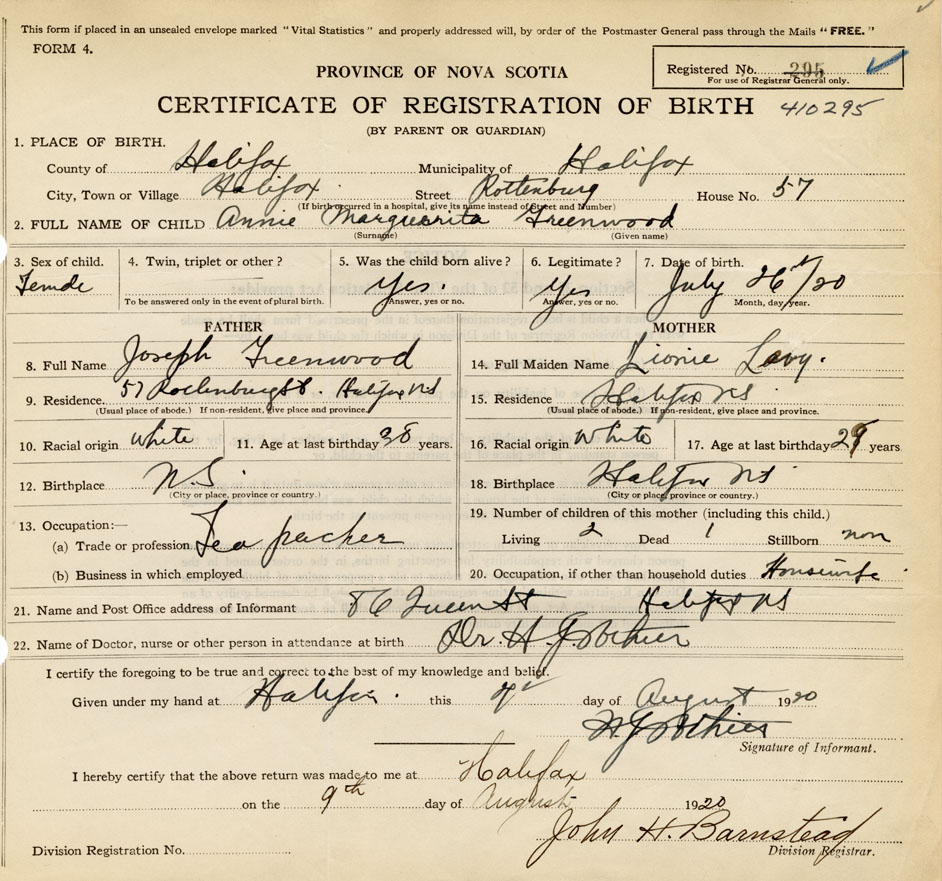 This form if placed in an unsealed envelope marked "Vital Statistics" and properly addressed will, by order of the Postmaster General pass through the Mails "FREE."
FORM 4.
Registered No. 295
For use of Registrar General only.
PROVINCE OF NOVA SCOTIA
CERTIFICATE OF REGISTRATION OF BIRTH 410295
(BY PARENT OR GUARDIAN)
1. PLACE OF BIRTH.
County of Halifax Municipality of Halifax
City, Town or Village Halifax Street Rottenburg House No. 57
(If birth occurred in a hospital, give its name instead of Street and Number)
2. FULL NAME OF CHILD Annie Marguerita Greenwood
(Surname) (Given name)
3. Sex of child. 4. Twin, triplet or other? 5. Was the child born alive? 6. Legitimate? 7. Date of birth.
Female Yes. Yes July 26th/20
To be answered only in the event of plural birth. Answer, yes or no. Answer, yes or no. Month, day, year.
FATHER MOTHER
8. Full Name Joseph Greenwood 14. Full Maiden Name Lionie Levy.
9. Residence 57 Rottenburg St. Halifax NS 15. Residence Halifax NS
(Usual place of abode.) If non-resident, give place and province. (Usual place of abode.) If non-resident, give place and province.
10. Racial origin White 11. Age at last birthday 38 years. 16. Racial origin White 17. Age at last birthday 29 years
12. Birthplace N.S 18. Birthplace Halifax NS
(City or place, province or country.) (City or place, province or country.)
13. Occupation:— 19. Number of children of this mother (including this child.)
(a) Trade or profession Tea packer Living 2 Dead 1 Stillborn non
(b) Business in which employed 20. Occupation, if other than household duties Housewife
21. Name and Post Office address of Informant 86 Queen St Halifax NS
22. Name of Doctor, nurse or other person in attendance at birth Dr. H
I certify the foregoing to be true and correct to the best of my knowledge and belief.
Given under my hand at Halifax. this day of August 1920
Signature of Informant.
I hereby certify that the above return was made to me at Halifax
on the 9th day of August 1920
John H. Barnstead
Division Registration No. Division Registrar.